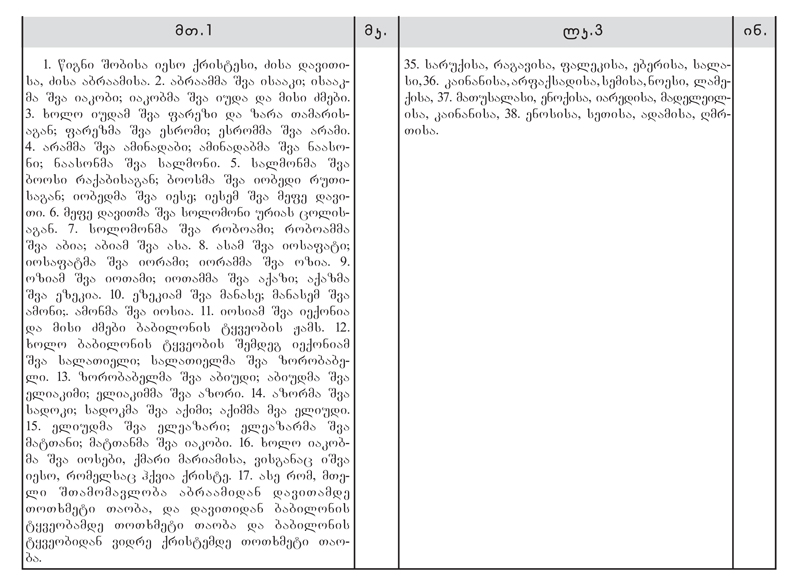 მთ.1
მკ.
ლკ.3
ინ.
1. წიგნი შობისა იესო ქრისტესი, ძისა დავითი-
სა, ძისა აბრაამისა. 2. აბრაამმა შვა ისააკი; ისააკ-
მა შვა იაკობი; იაკობმა შვა იუდა და მისი ძმები.
3. ხოლო იუდამ შვა ფარეზი და ზარა თამარის-
აგან; ფარეზმა შვა ესრომი; ესრომმა შვა არამი.
4. არამმა შვა ამინადაბი; ამინადაბმა შვა ნაასო-
ნი; ნაასონმა შვა სალმონი. 5. სალმონმა შვა
ბოოსი რაქაბისაგან; ბოოსმა შვა იობედი რუთი-
საგან; იობედმა შვა იესე; იესემ შვა მეფე დავი-
თი. 6. მეფე დავითმა შვა სოლომონი ურიას ცოლის-
აგან. 7. სოლომონმა შვა რობოამი; რობოამმა
შვა აბია; აბიამ შვა ასა. 8. ასამ შვა იოსაფატი;
იოსაფატმა შვა იორამი; იორამმა შვა ოზია. 9.
ოზიამ შვა იოთამი; იოთამმა შვა აქაზი; აქაზმა
შვა ეზეკია. 10. ეზეკიამ შვა მანასე; მანასემ შვა
ამონი;. ამონმა შვა იოსია. 11. იოსიამ შვა იექონია
და მისი ძმები ბაბილონის ტყვეობის ჟამს. 12.
ხოლო ბაბილონის ტყვეობის შემდეგ იექონიამ
შვა სალათიელი; სალათიელმა შვა ზორობაბე-
ლი. 13. ზორობაბელმა შვა აბიუდი; აბიუდმა შვა
ელიაკიმი; ელიაკიმმა შვა აზორი. 14. აზორმა შვა
სადოკი; სადოკმა შვა აქიმი; აქიმმა მვა ელიუდი.
15. ელიუდმა შვა ელეაზარი; ელეაზარმა შვა
მატთანი; მატთანმა შვა იაკობი. 16. ხოლო იაკობ-
მა შვა იოსები, ქმარი მარიამისა, ვისგანაც იშვა
იესო, რომელსაც ჰქვია ქრისტე. 17. ასე რომ, მთე-
ლი შთამომავლობა აბრაამიდან დავითამდე
თოთხმეტი თაობა, და დავითიდან ბაბილონის
ტყვეობამდე თოთხმეტი თაობა და ბაბილონის
ტყვეობიდან ვიდრე ქრისტემდე თოთხმეტი თაო-
ბა.
35. სარუქისა, რაგავისა, ფალეკისა, ებერისა, სალა-
სი,36. კაინანისა,არფაქსადისა,სემისა,ნოესი, ლამე-
ქისა, 37. მათუსალასი, ენოქისა, იარედისა, მადელეილ-
ისა, კაინანისა, 38. ენოსისა, სეთისა, ადამისა, ღმრ-
თისა.